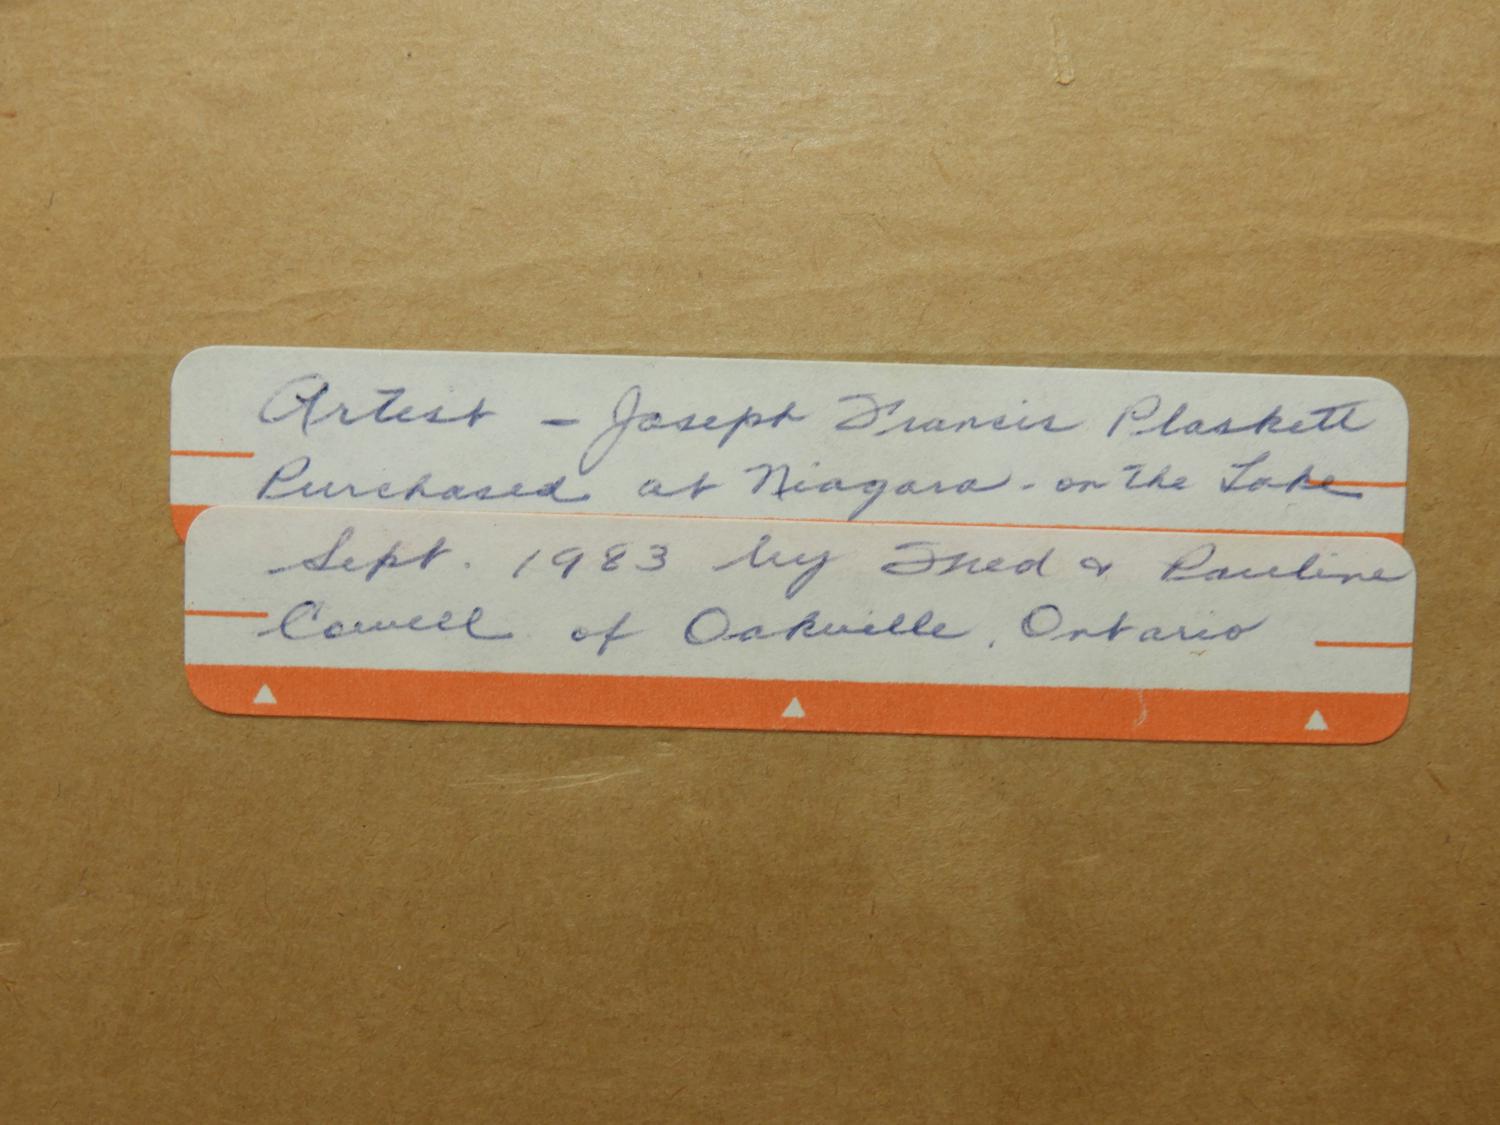 Artist - Joseph Francis Plaskett
Purchased at Niagara-on the Lake
Sept. 1983 by Fred & Pauline
Cowell of Oakville, Ontario